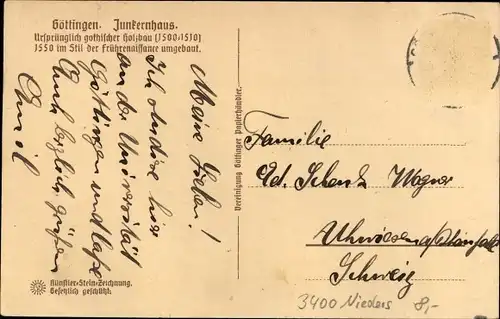 Göttingen. Junkernhaus.
Ursprünglich gothischer Holzbau (1500-1510)
1550 im Stil der Frührenaissance umgebaut.
Meine Lieben!
Ich studiere hier
an der Universität
Göttingen und lasse
Euch herzlich grüßen
Emil
Vereinigung Göttinger Papierhändler.
Familie
Ed. Schenk Wagner
Uhwiesen a/Rheinfall
Schweiz
Künstler-Stein-Zeichnung.
Gesetzlich geschützt.
3400 Nieders 8,-